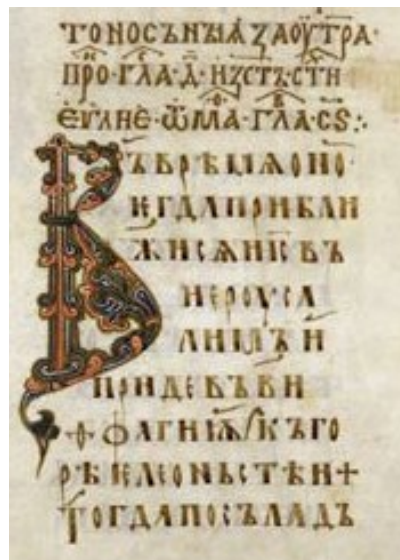 тоносъныꙗ заоутра·
про·гла·д҃·
евⷢ҇лие·ѿ ма·гла·сѕ:·
Въ врѣмѧ оно·
ѥгда приближи
жисѧ ис҃ въ
иероуса
лимъ и
приде въ ви
тфагиѭ къ го
рѣ елеоньстѣи +
тогда посъла дъ